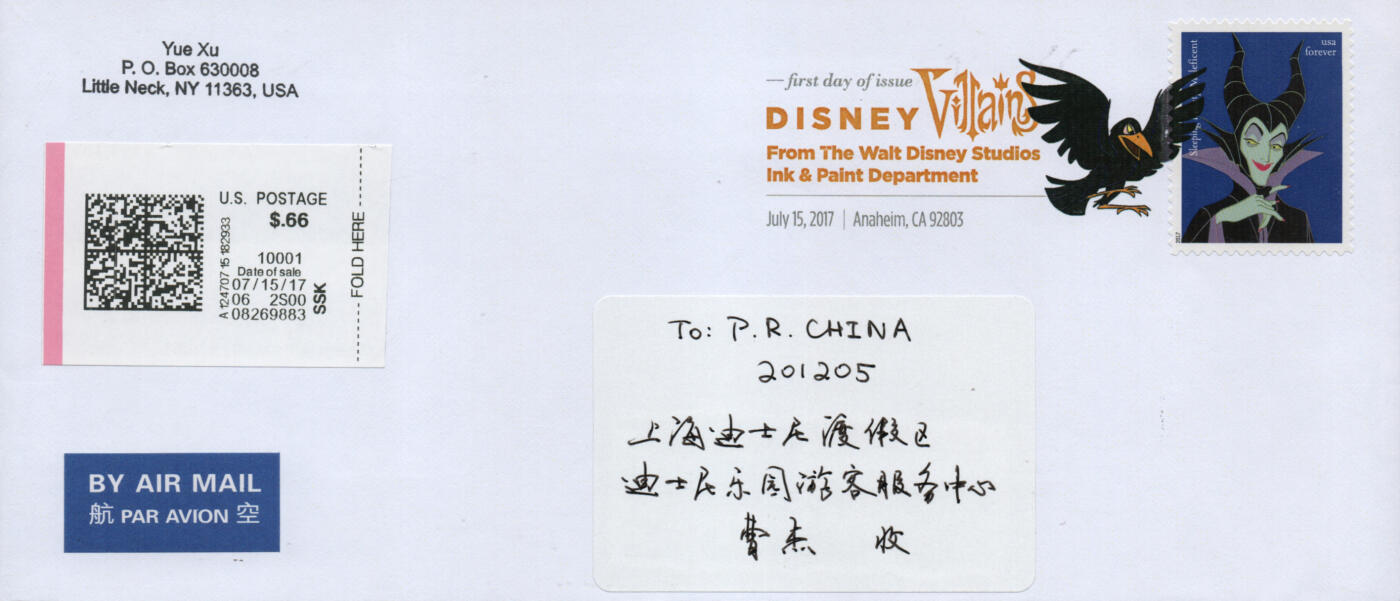 Yue Xu
P. O. Box 630008
Little Neck, NY 11363, USA
first day of issue
DISNEY Villains
From The Walt Disney Studios
Ink & Paint Department
July 15, 2017 | Anaheim, CA 92803
usa
forever
Sleeping
Maleficent
2017
U.S. POSTAGE
$.66
10001
Date of sale
07/15/17
06 2S00
08269883
A 124707 15 182933
SSK
FOLD HERE
BY AIR MAIL
航 PAR AVION 空
To: P.R. CHINA
201205
上海迪士尼渡假区
迪士尼乐园游客服务中心
曹杰 收